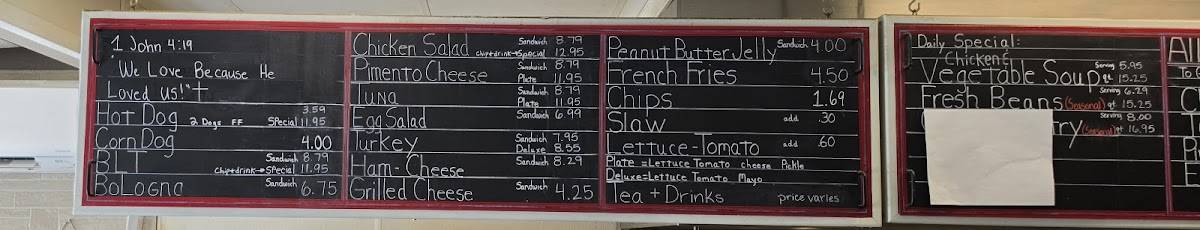 1 John 4:19
"We Love Because He
Loved us!"
Hot Dog 3.59
2 Dogs FF Special 11.95
Corn Dog 4.00
BLT Sandwich 8.79
chip+drink→Special 11.95
Bologna Sandwich 6.75
Chicken Salad Sandwich 8.79
chip+drink→Special 12.95
Pimento Cheese Sandwich 8.79
Plate 11.95
Tuna Sandwich 8.79
Plate 11.95
Egg Salad Sandwich 6.99
Turkey Sandwich 7.95
Deluxe 8.55
Ham-Cheese Sandwich 8.29
Grilled Cheese Sandwich 4.25
Peanut Butter Jelly Sandwich 4.00
French Fries 4.50
Chips 1.69
Slaw add .30
Lettuce-Tomato add .60
Plate =Lettuce Tomato cheese Pickle
Deluxe=Lettuce Tomato Mayo
Tea + Drinks price varies
Daily Special:
Chicken &
Vegetable Soup Serving 5.95
qt 15.25
Fresh Beans (Seasonal) Serving 6.29
qt 15.25
ry (Seasonal) Serving 8.00
qt 16.95